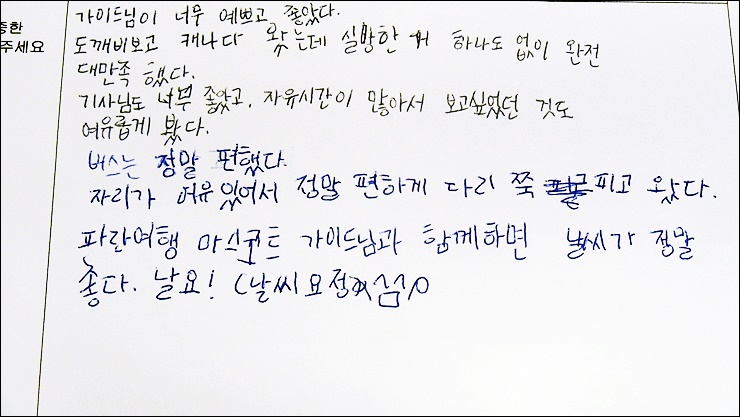 중한
주세요
가이드님이 너무 예쁘고 좋았다.
도깨비보고 캐나다 왔는데 실망한 거 하나도 없이 완전
대만족 했다.
기사님도 너무 좋았고, 자유시간이 많아서 보고싶었던 것도
여유롭게 봤다.
버스는 정말 편했다.
자리가 여유 있어서 정말 편하게 다리 쭉 피고 왔다.
파란여행 마스코트 가이드님과 함께하면 날씨가 정말
좋다. 날요! (날씨요정